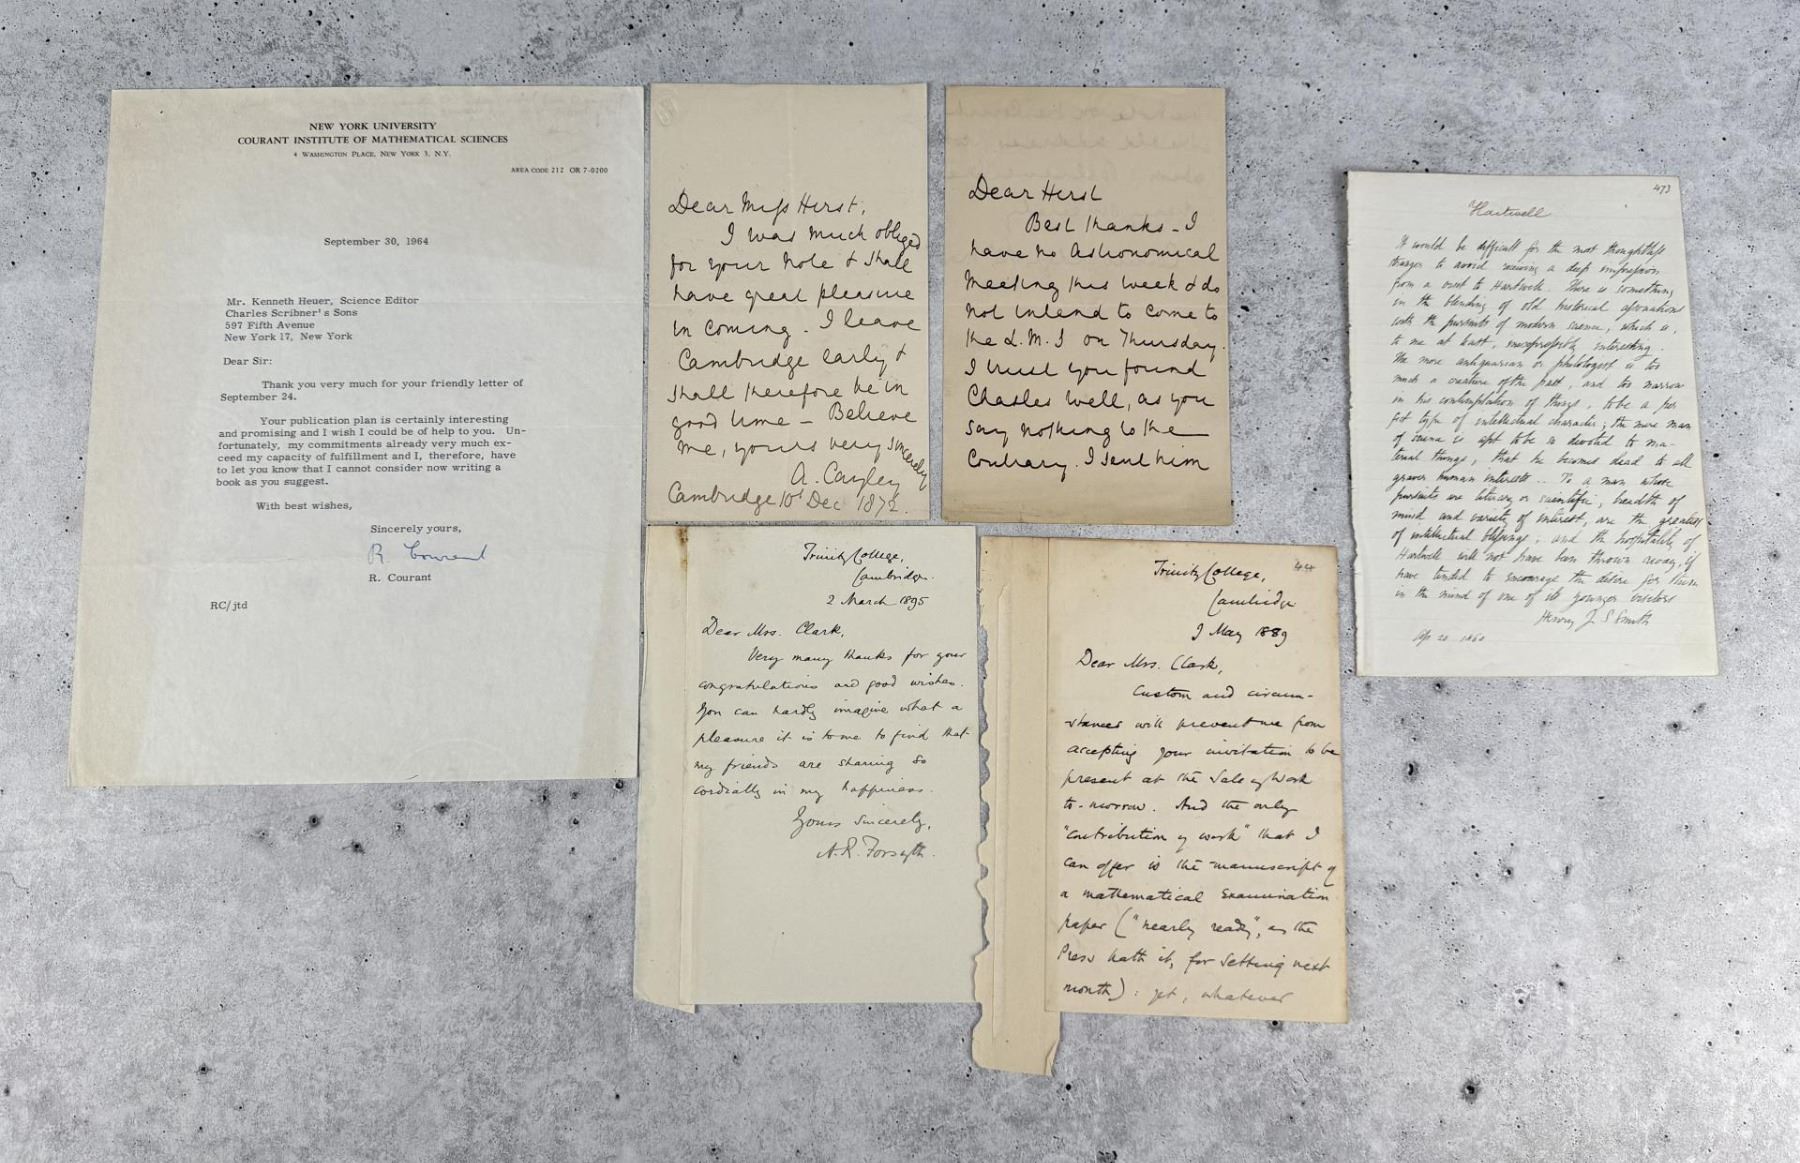 NEW YORK UNIVERSITY
COURANT INSTITUTE OF MATHEMATICAL SCIENCES
4 WASHINGTON PLACE, NEW YORK 3, N.Y.
AREA CODE 212 OR 7-0200
September 30, 1964
Mr. Kenneth Heuer, Science Editor
Charles Scribner's Sons
597 Fifth Avenue
New York 17, New York
Dear Sir:
Thank you very much for your friendly letter of
September 24.
Your publication plan is certainly interesting
and promising and I wish I could be of help to you. Un-
fortunately, my commitments already very much ex-
ceed my capacity of fulfillment and I, therefore, have
to let you know that I cannot consider now writing a
book as you suggest.
With best wishes,
Sincerely yours,
R Courant
R. Courant
RC/jtd
Dear Miss Hirst,
I was much obliged
for your note & shall
have great pleasure
in coming. I leave
Cambridge early &
shall therefore be in
good time – Believe
me, yours very sincerely
A. Cayley
Cambridge 10t Dec 1872.
Dear Hirst
Best thanks – I
have no Astronomical
Meeting this week & do
not intend to come to
the L.M.S on Thursday.
I trust you found
Chasles well, as you
say nothing to the
contrary. I sent him
Trinity College,
Cambridge.
2 March 1895
Dear Mrs. Clark,
Very many thanks for your
congratulations and good wishes.
You can hardly imagine what a
pleasure it is to me to find that
my friends are sharing so
cordially in my happiness.
Yours sincerely,
A. R. Forsyth.
44
Trinity College,
Cambridge
9 May 1889
Dear Mrs. Clark,
Custom and circum-
stances will prevent me from
accepting your invitation to be
present at the Sale of Work
to-morrow. And the only
"contribution of work" that I
can offer is the manuscript of
a mathematical Examination
paper ("nearly ready", as the
Press hath it, for setting next
month): yet, whatever
473
Hartwell
It would be difficult for the most thoughtless
stranger to avoid receiving a deep impression
from a visit to Hartwell. There is something
in the blending of old historical associations
with the pursuits of modern science, which is,
to me at least, inexpressibly interesting.
The mere antiquarian or philologist is too
much a creature of the past, and too narrow
in his contemplation of things, to be a per
fect type of intellectual character; the mere man
of science is apt to be so devoted to ma-
terial things, that he becomes dead to all
graver human interests. To a man whose
pursuits are literary or scientific, breadth of
mind and variety of interest, are the greatest
of intellectual blessings; and the hospitality of
Hartwell will not have been thrown away, if
have tended to encourage the desire for them
in the mind of one of its younger visitors
Henry J S Smith